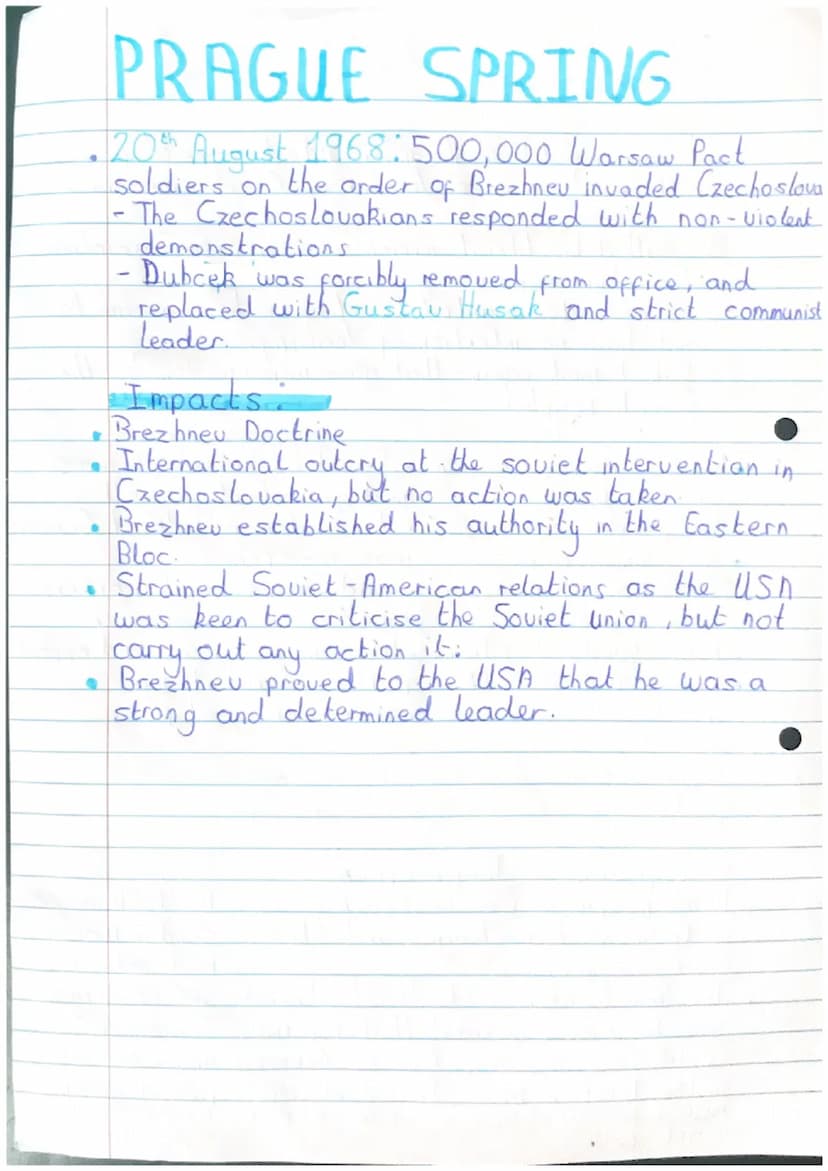 PRAGUE SPRING
• 20th August 1968: 500,000 Warsaw Pact
soldiers on the order of Brezhnev invaded Czechoslova
- The Czechoslovakians responded with non-violent
demonstrations
- Dubcek was forcibly removed from office, and
replaced with Gustav Husak and strict communist
leader.
Impacts:
• Brezhnev Doctrine
• International outcry at the soviet intervention in
Czechoslovakia, but no action was taken
• Brezhnev established his authority in the Eastern
Bloc.
• Strained Soviet-American relations as the USA
was keen to criticise the Soviet union, but not
carry out any action it.
• Brezhnev proved to the USA that he was a
strong and determined leader.